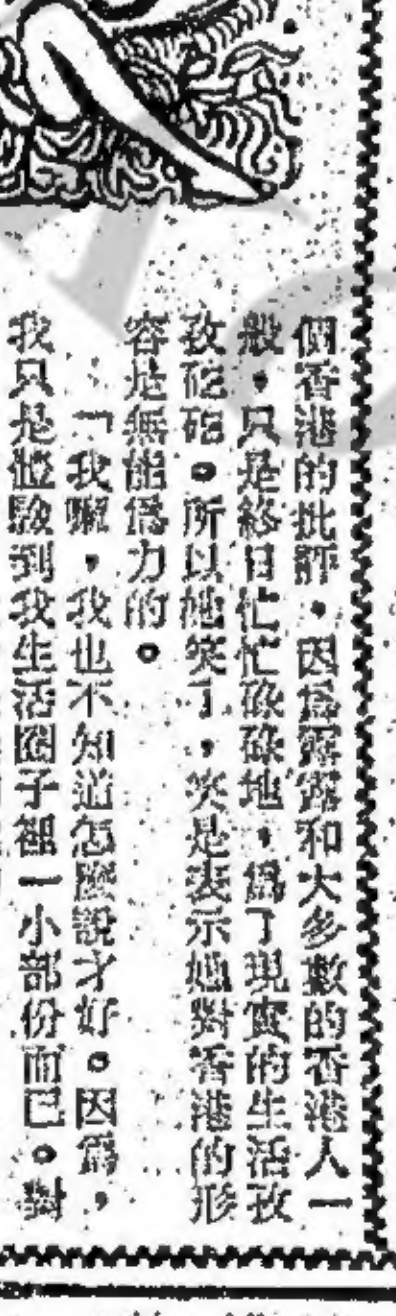 個香港的批評，因為露露和大多數的香港人一
般，只是終日忙忙碌碌地，為了現實的生活孜
孜矻矻。所以她笑了，笑是表示她對香港的形
容是無能為力的。
「我嘛，我也不知道怎麼說才好。因為，
我只是體驗到我生活圈子裡一小部份而已。對